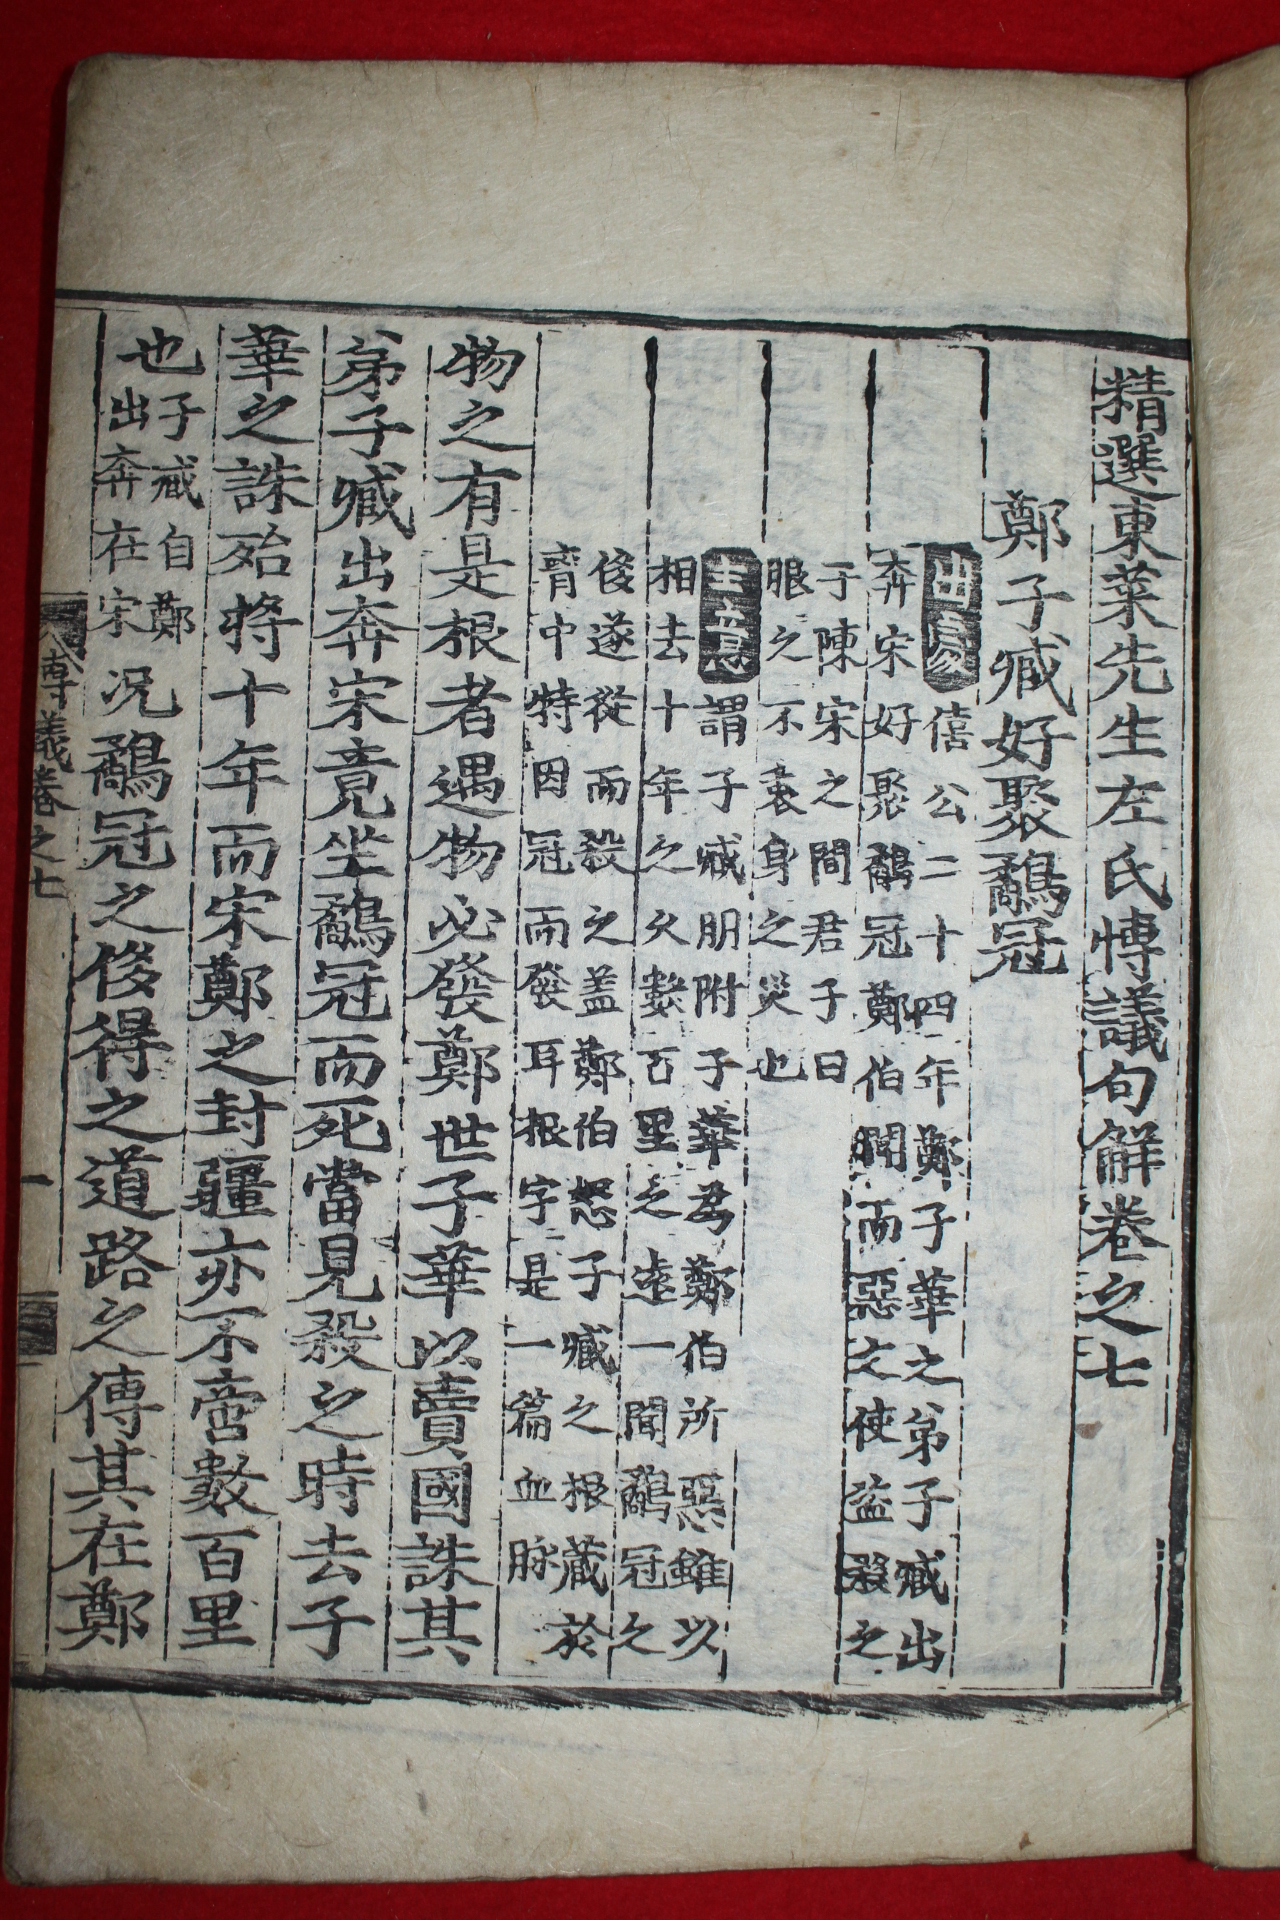 精選東萊先生左氏博議句解卷之七
鄭子臧好聚鷸冠
出處 僖公二十四年鄭子華之弟子臧出
奔宋好聚鷸冠鄭伯聞而惡之使盜殺之
于陳宋之間君子曰
服之不衷身之災也
主意 謂子臧朋附子華為鄭伯所惡雖以
相去十年之久數百里之遠一聞鷸冠之
後遂從而殺之盖鄭伯怒子臧之根藏於
胷中特因冠而發耳根字是一篇血脉
物之有是根者遇物必發鄭世子華以賣國誅其
弟子臧出奔宋竟坐鷸冠而死當見殺之時去子
華之誅殆將十年而宋鄭之封疆亦不啻數百里
也子臧自鄭出奔在宋况鷸冠之後得之道路之傳其在鄭
博議卷之七
一